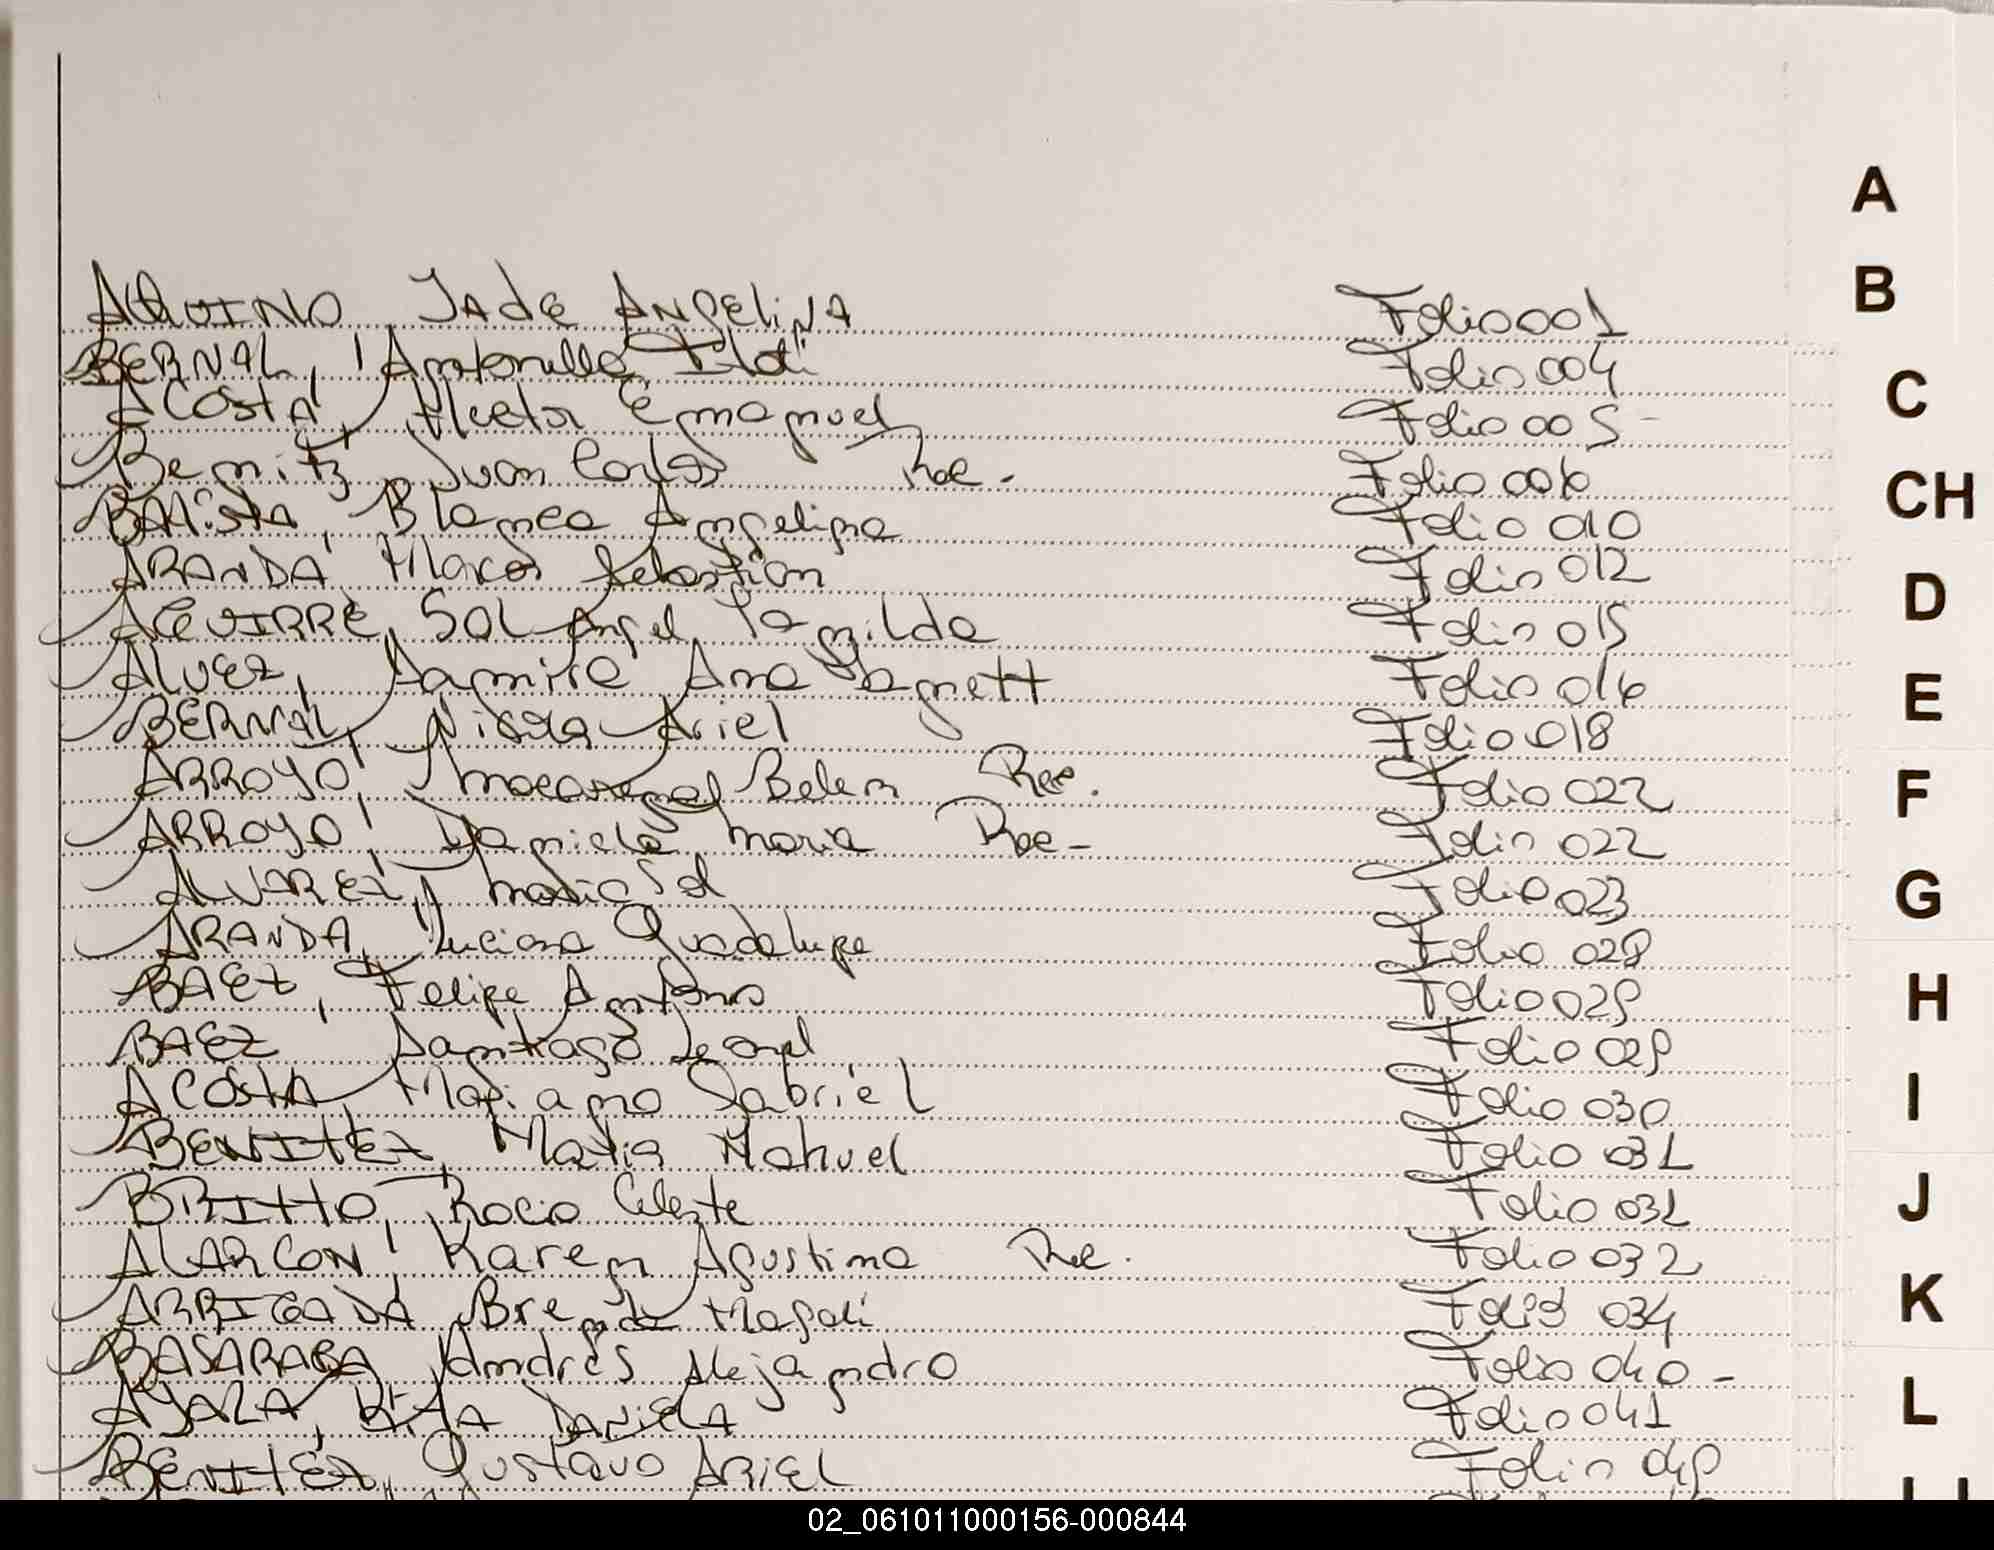 AQUINO, Jade Angelina Folio 001
BERNAL, Antonella Folio 004
ACOSTA, Hector Emanuel Folio 005 -
Juan Carlos Rec. Folio 006
Blanca Angelina Folio 010
ARANDA Marcos Sebastian Folio 012
AGUIRRE, SOL Angel Folio 015
ALVEZ, Samira Ana Folio 016
BERNAL, Ariel Folio 018
ARROYO, Macarena Belen Rec. Folio 022
ARROYO, Daniela Maria Rec - Folio 022
ALVAREZ, Maria Sol Folio 023
ARANDA, Luciana Guadalupe Folio 028
BAEZ, Felipe Antonio Folio 029
BAEZ Santiago Leonel Folio 029
ACOSTA, Mariano Gabriel Folio 030
BENITEZ, Matias Nahuel Folio 031
BRITTO, Rocio Celeste Folio 031
ALARCON, Karen Agustina Rec. Folio 032
ARRIGADA Brenda Magali Folio 034
BASARABA, Andres Alejandro Folio 040 -
AYALA, Rita Daniela Folio 041
BENITEZ, Gustavo ARIEL Folio
A
B
C
CH
D
E
F
G
H
I
J
K
L
02_061011000156-000844